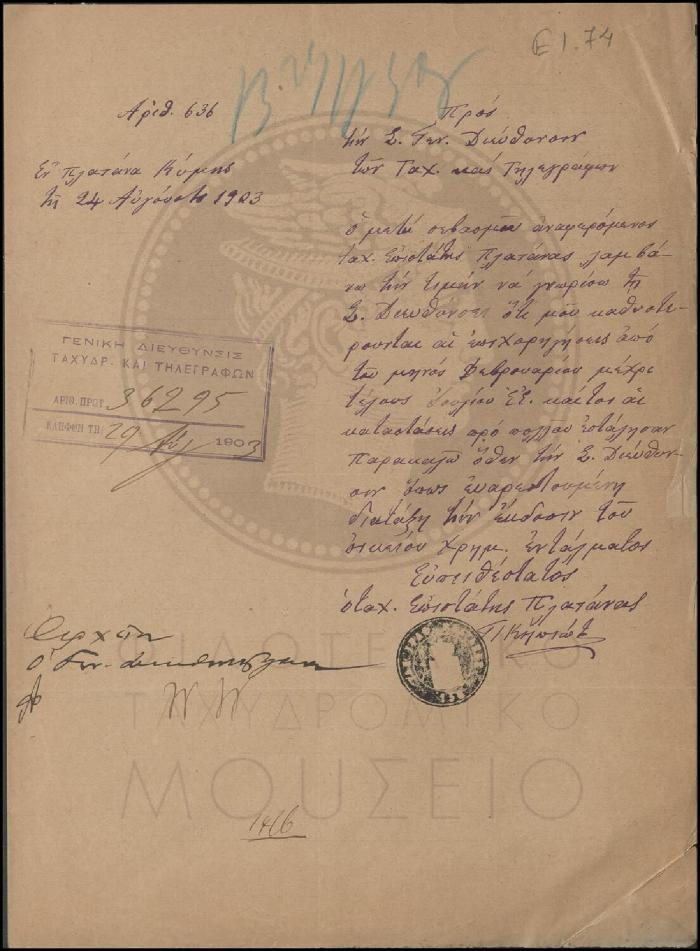 Ε 1.74
Ἀριθ. 636
Ἐν Πλατάνᾳ Κύμης
τῇ 24 Αὐγούστου 1903
Πρὸς
τὴν Σ. Γεν. Διεύθυνσιν
τῶν Ταχ. καὶ Τηλεγράφων
ὁ μετὰ σεβασμοῦ ἀναφερόμενος
ταχ. Ἐπιστάτης Πλατάνας λαμβά-
νω τὴν τιμὴν νὰ γνωρίσω τῇ
Σ. Διευθύνσει ὅτι μοῦ καθυστε-
ροῦνται αἱ ἐπιχορηγήσεις ἀπὸ
τοῦ μηνὸς Φεβρουαρίου μέχρι
τέλους Ἰουλίου ἐ.ἔ. καίτοι αἱ
καταστάσεις πρὸ πολλοῦ ἐστάλησαν
Παρακαλῶ ὅθεν τὴν Σ. Διεύθυν-
σιν ὅπως εὐαρεστουμένη
διατάξῃ τὴν ἔκδοσιν τοῦ
οἰκείου χρημ. ἐντάλματος
Εὐπειθέστατος
ὁ ταχ. Ἐπιστάτης Πλατάνας
ΓΕΝΙΚΗ ΔΙΕΥΘΥΝΣΙΣ
ΤΑΧΥΔΡ. ΚΑΙ ΤΗΛΕΓΡΑΦΩΝ
ΑΡΙΘ. ΠΡΩΤ. 36295
ΕΛΗΦΘΗ ΤΗ 29 Αὐγ 1903
ὁ Γεν. Διευθυντὴς
ΦΙΛΟΤΕΛΙΚΟ
ΤΑΧΥΔΡΟΜΙΚΟ
ΜΟΥΣΕΙΟ